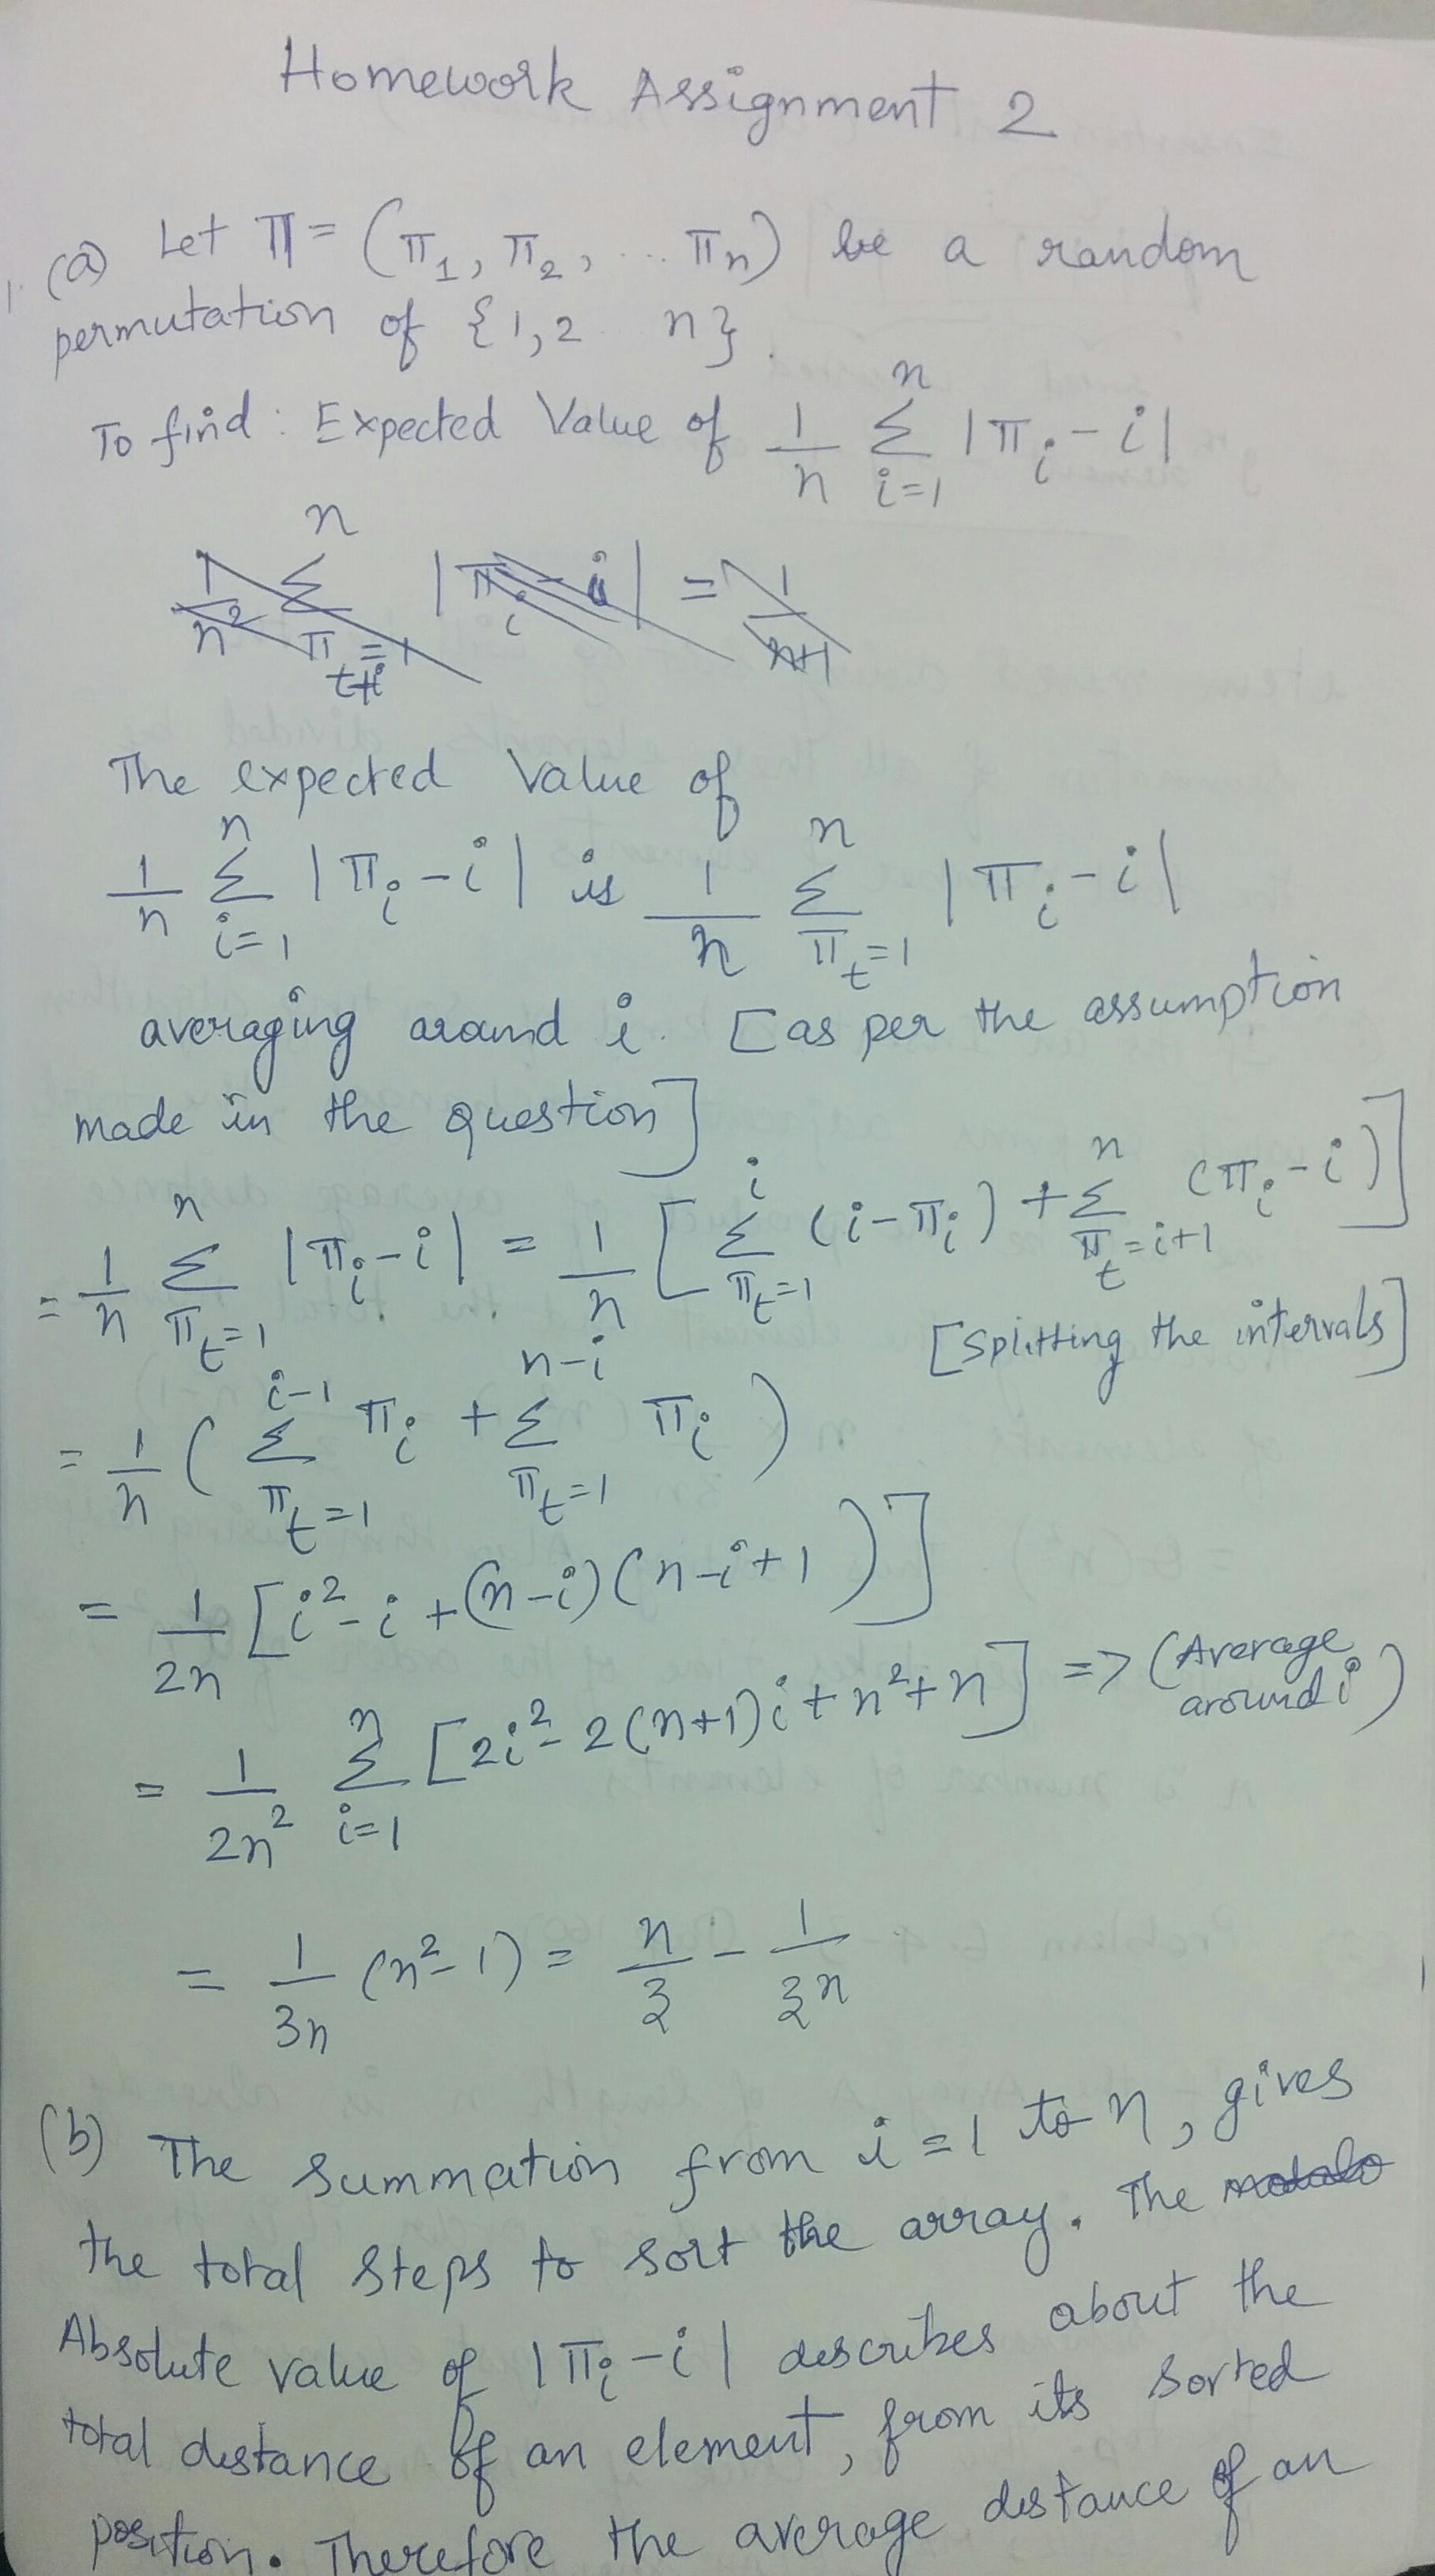 Homework Assignment 2
1. (a) Let π = (π₁, π₂, ... πₙ) be a random
permutation of {1,2 n}.
To find : Expected Value of 1/n Σ_{i=1}^{n} |πᵢ - i|
1/n² Σ^{n} |πᵢ - i| = 1/n+1
The expected Value of
1/n Σ_{i=1}^{n} |πᵢ - i| is 1/n Σ_{π_t=1}^{n} |πᵢ - i|
averaging around i. [as per the assumption
made in the question]
= 1/n Σ_{π_t=1}^{n} |πᵢ - i| = 1/n [Σ_{π_t=1}^{i} (i - πᵢ) + Σ_{π_t=i+1}^{n} (πᵢ - i)]
[Splitting the intervals]
= 1/n (Σ_{π_t=1}^{i-1} πᵢ + Σ_{π_t=1}^{n-i} πᵢ)
= 1/2n [i² - i + (n-i)(n-i+1)]
= 1/2n² Σ_{i=1}^{n} [2i² - 2(n+1)i + n² + n] => (Average around i)
= 1/3n (n² - 1) = n/3 - 1/3n
(b) The summation from i = 1 to n, gives
the total steps to sort the array. The
Absolute value of |πᵢ - i| describes about the
total distance of an element, from its sorted
position. Therefore the average distance of an